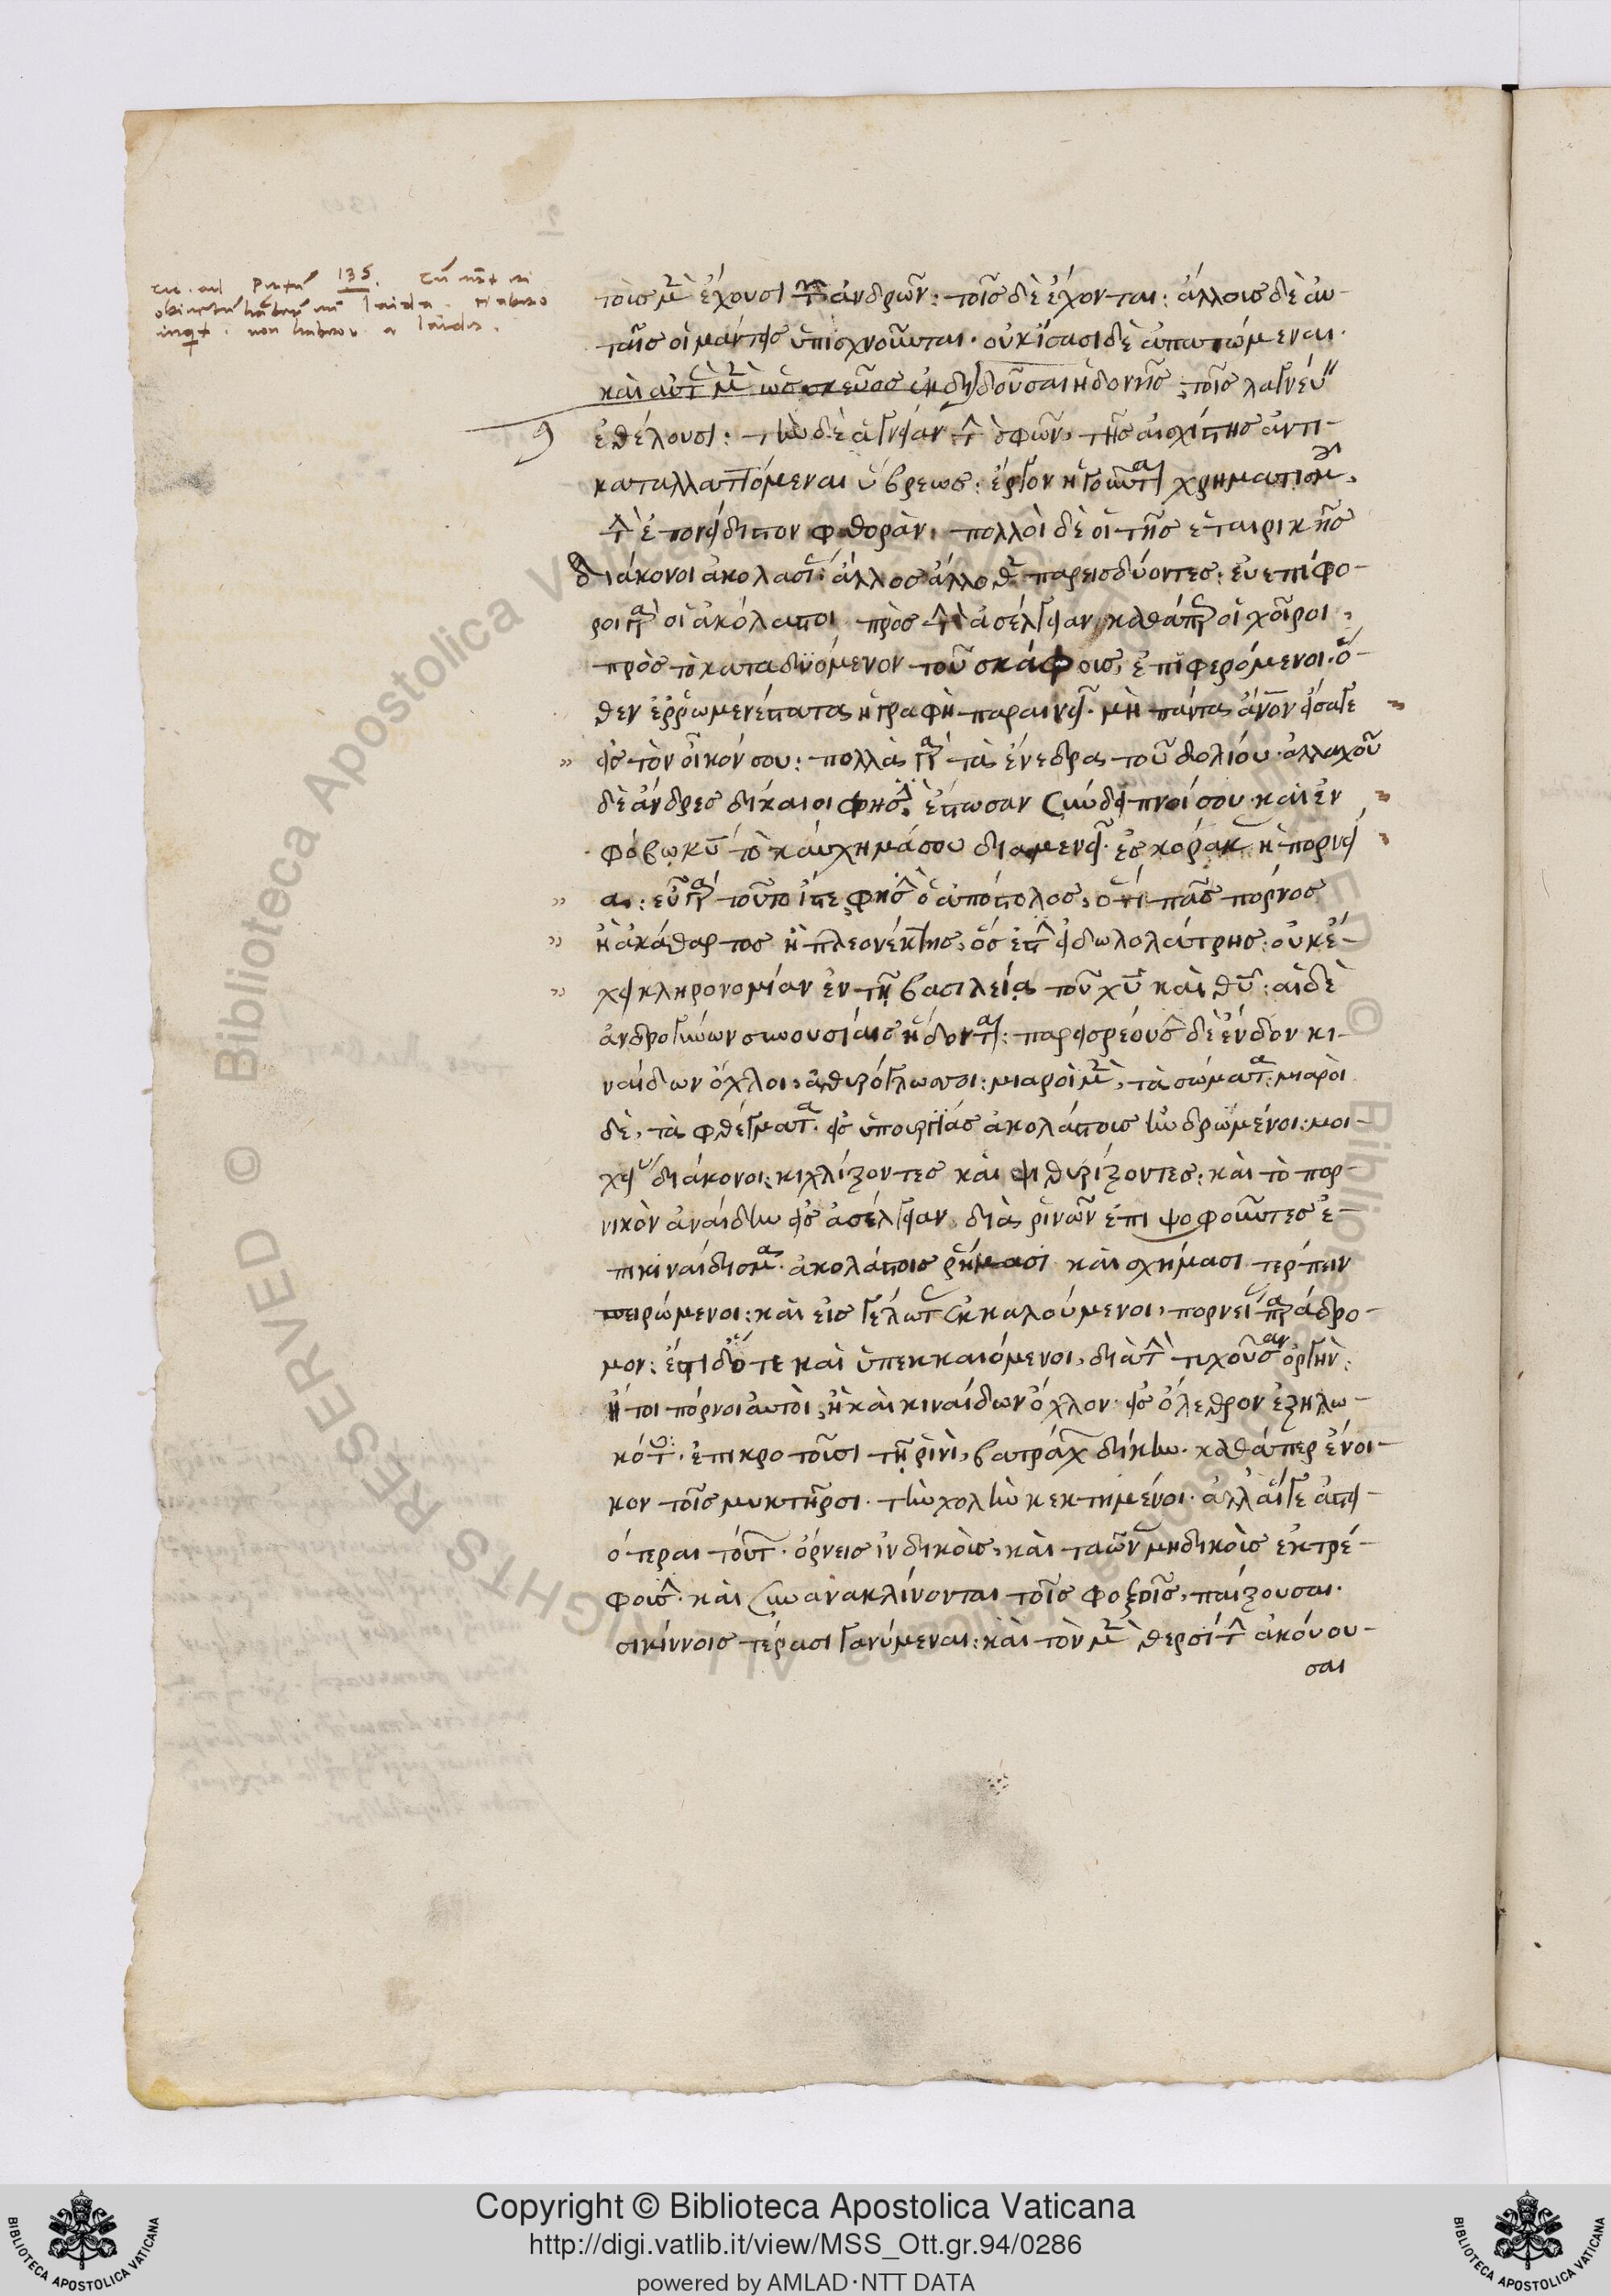 τοῖς μὲν ἔχουσι τῶν ἀνδρῶν: τοῖς δὲ ἔχονται: ἄλλοις δὲ αὐ-
ταῖς οἱ μάντεις ὑπισχνοῦνται. οὐκ ἴσασι δὲ ἀπατώμεναι.
καὶ αὑτὰς μὲν ὡς σκεῦος ἐκδιδοῦσαι ἡδονῆς τοῖς λαγνεύ"
ἐθέλουσι: τὴν δὲ ἁγνείαν τὴν σφῶν, τῆς αἰσχίστης ἀντι-
καταλλαττόμεναι ὕβρεως: ἔργον ἡγοῦνται χρηματισμ
τὴν ἐπονείδιστον φθοράν. πολλοὶ δὲ οἱ τῆς ἑταιρικῆς
διάκονοι ἀκολασίας: ἄλλος ἄλλοθεν παρεισδύοντες: εὐεπίφο-
ροι γὰρ οἱ ἀκόλαστοι πρὸς τὴν ἀσέλγειαν, καθάπερ οἱ χοῖροι,
πρὸς τὸ καταδυόμενον τοῦ σκάφους, ἐπιφερόμενοι. ὅ-
θεν ἐρρωμενέστατα ἡ γραφὴ παραινεῖ. μὴ πάντα ἄνον εἴσαγε
εἰς τὸν οἶκόν σου: πολλὰ γὰρ τὰ ἔνεδρα τοῦ δολίου. ἀλλαχοῦ
δὲ ἄνδρες δίκαιοι φησὶν, ἔστωσαν σύνδειπνοί σου. καὶ ἐν
φόβῳ κυ τὸ καύχημά σου διαμενεῖ. ἐς κόρακας ἡ πορνεί
α: εὖ γὰρ τοῦτο ἴστε, φησὶν ὁ ἀπόστολος, ὅτι πᾶς πόρνος
ἢ ἀκάθαρτος ἢ πλεονέκτης, ὅς ἐστιν εἰδωλολάτρης: οὐκ ἔ-
χει κληρονομίαν ἐν τῇ βασιλείᾳ τοῦ χυ καὶ θυ: αἱ δὲ
ἀνδρογύνων συνουσίαις ἥδονται: παρεισρέουσι δὲ ἔνδον κι-
ναίδων ὄχλοι, ἀθυρόγλωσσοι: μιαροὶ μὲν, τὰ σώματα: μιαροὶ
δὲ, τὰ φθέγματα. εἰς ὑπουργίας ἀκολάστους ἠνδρωμένοι: μοι-
χείας διάκονοι: κιχλίζοντες καὶ ψιθυρίζοντες: καὶ τὸ πορ-
νικὸν ἀναίδην εἰς ἀσέλγειαν, διὰ ῥινῶν ἐπιψοφοῦντες ἐ-
πικιναίδισμα. ἀκολάστοις ῥήμασι καὶ σχήμασι τέρπειν
πειρώμενοι: καὶ εἰς γέλωτα ἐκκαλούμενοι, πορνείας πρόδρο-
μον: ἔστι δ' ὅτε καὶ ὑπεκκαιόμενοι, διὰ τὴν τυχοῦσαν ὀργὴν:
ἤτοι πόρνοι αὐτοὶ, ἢ καὶ κιναίδων ὄχλον εἰς ὄλεθρον ἐζηλω-
κότες. ἐπικροτοῦσι τῇ ῥινὶ, βατράχου δίκην. καθάπερ ἔνοι-
κον τοῖς μυκτῆρσι. τὴν χολὴν κεκτημένοι. ἀλλ' αἵ γε ἀστει-
ότεραι τούτων. ὄρνεις ἰνδικοὺς, καὶ ταῶνας μηδικοὺς ἐκτρέ-
φουσιν. καὶ συνανακλίνονται τοῖς φοξοῖς, παίζουσαι.
σικίννοις τέρασι γανύμεναι: καὶ τὸν μὲν θερσίτην ἀκούου-
σαι
Copyright © Biblioteca Apostolica Vaticana
http://digi.vatlib.it/view/MSS_Ott.gr.94/0286
powered by AMLAD·NTT DATA